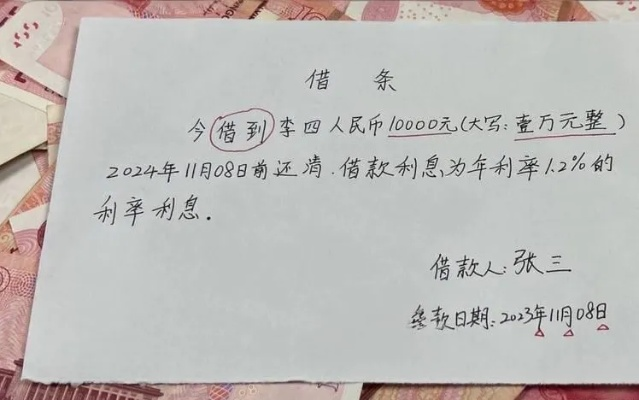 借 条
今借到李四人民币10000元(大写:壹万元整)
2024年11月08日前还清.借款利息为年利率1.2%的
利率利息.
借款人:张三
款日期:2023年11月08日